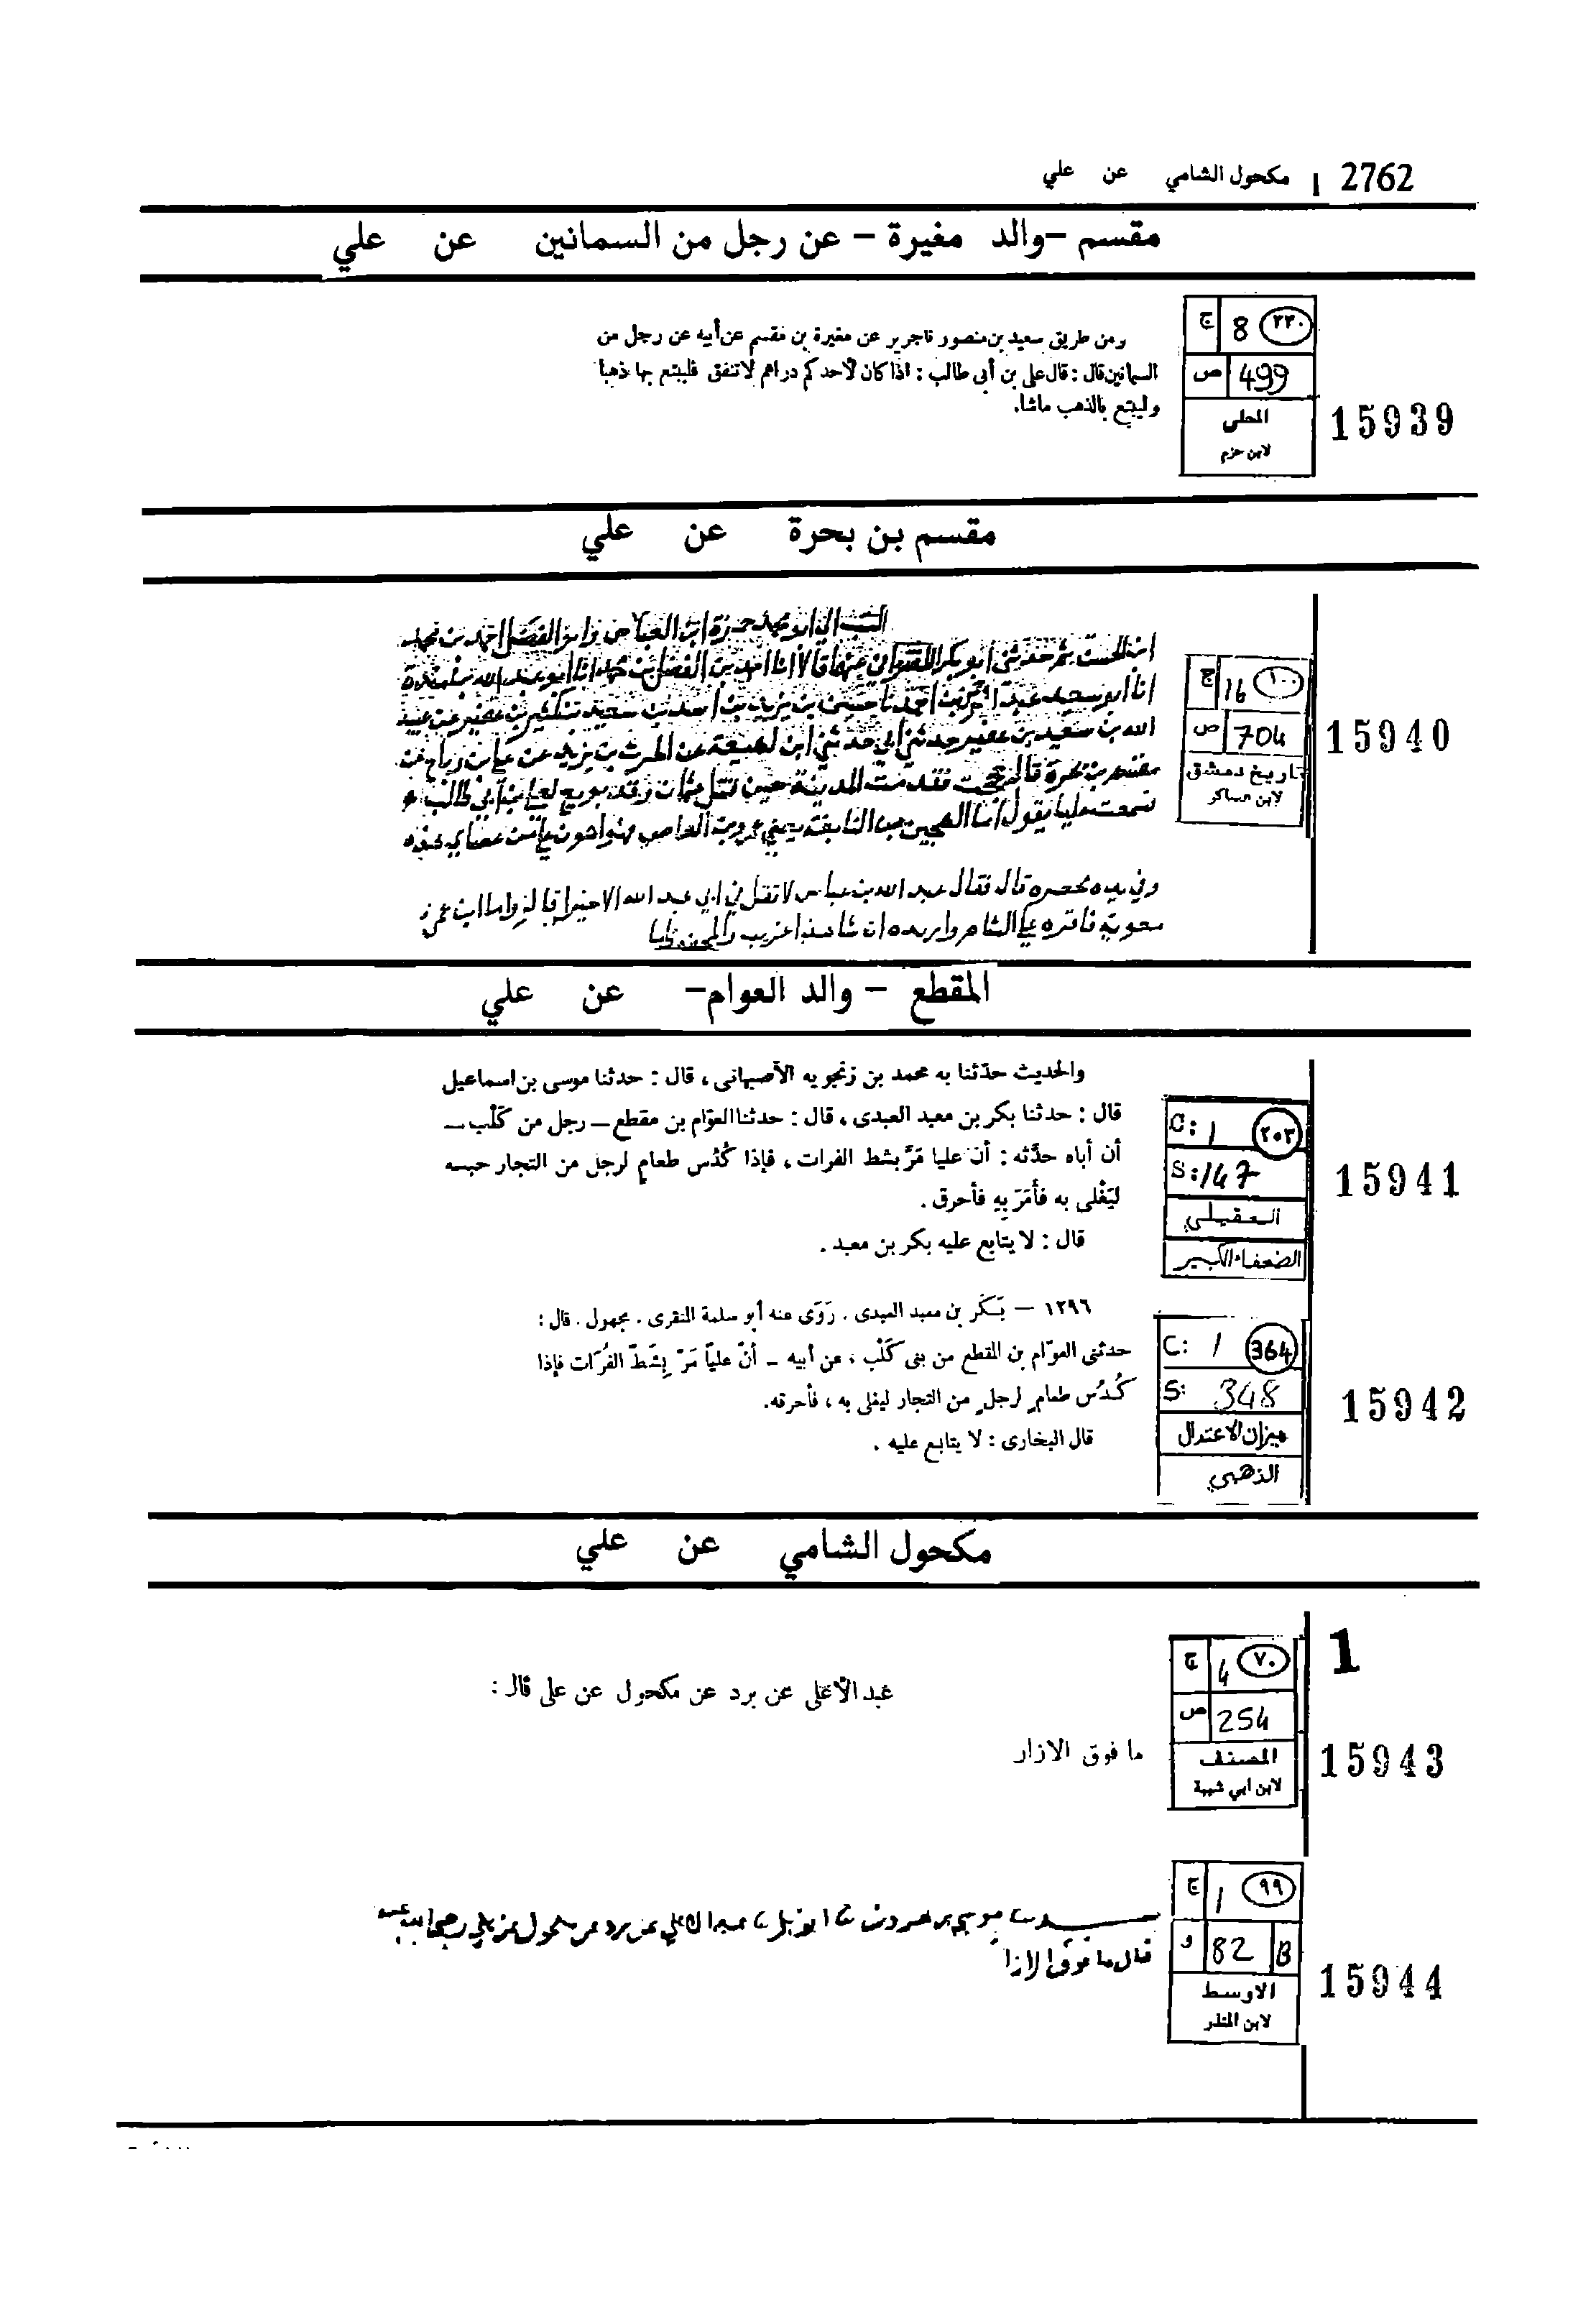 2762 | مكحول الشامي عن علي
مقسم -والد مغيرة - عن رجل من السمانين عن علي
ج 8 ٢٣٠
ص 499
المحلى
لابن حزم
15939
ومن طريق سعيد بن منصور نا جرير عن مغيرة بن مقسم عن أبيه عن رجل من
السمانين قال : قال على بن أبى طالب : اذا كان لأحدكم دراهم لا تنفق فليبتع بها ذهبا
وليبتع بالذهب ماشا.
مقسم بن بحرة عن علي
ج 16 ١٠٠
ص 704
تاريخ دمشق
لابن عساكر
15940
ابو محمد حمزة ابن العباس وابو الفضل احمد بن محمد
ابن الحسن ثم حدثني ابو بكر اللفتواني عنهما قالا انا احمد بن الفضل بن محمد انا ابو عبد الله بن منده
انا ابو سعيد بن احمد بن يزيد بن اسد بن سعيد بن كثير بن عفير عن عبيد
الله بن سعيد بن عفير حدثني ابي حدثني ابن لهيعة عن الحرث بن يزيد عن علي بن رباح عن
مقسم بن بحرة قال حججت فقدمت المدينة حين قتل عثمان وقد بويع لعلي بن ابي طالب
فسمعت عليا يقول ابن النابغة يعني عمرو بن العاص
وفي يده مخصره قال فقال عبد الله بن عباس لا تقل في ابي عبد الله الا خيرا قال واما ابن عمي
معوية فاقره علي الشام واريده ان شا
المقطع - والد العوام- عن علي
C: 1 ٢٠٣
S: 147
العقيلي
الضعفاء الكبير
15941
والحديث حدّثنا به محمد بن زنجويه الأصبهانى ، قال : حدثنا موسى بن اسماعيل
قال : حدثنا بكر بن معبد العبدى ، قال : حدثنا العوّام بن مقطع – رجل من كَلْب –
أن أباه حدَّثه : أن عليا مَرَّ بشط الفرات ، فإذا كُدْس طعامٍ لرجل من التجار حبسه
ليَغْلى به فأمَرَ بِهِ فأحرق .
قال : لا يتابع عليه بكر بن معبد .
C: 1 364
S: 348
ميزان الاعتدال
الذهبي
15942
١٢٩٦ – بَكر بن معبد العبدى . رَوَى عنه أبو سلمة المنقرى . مجهول . قال :
حدثنى العوّام بن المقطع من بنى كَلْب ، عن أبيه – أنّ عليّاً مَرّ بِشَطّ الفُرَات فإذا
كُدُس طعامٍ لرجلٍ من التجار ليغلى به ، فأحرقه.
قال البخارى : لا يتابع عليه .
مكحول الشامي عن علي
1
ج 4 ٧٠
ص 254
المصنف
لابن ابي شيبة
15943
عبد الأعلى عن برد عن مكحول عن على قال :
ما فوق الازار
ج 1 ٩٩
و 82 B
الاوسط
لابن المنذر
15944
موسى بن هرون ثنا ابو بكر ثنا عبد الاعلي عن برد عن مكحول عن علي رضي الله عنه
قال ما فوق الازار